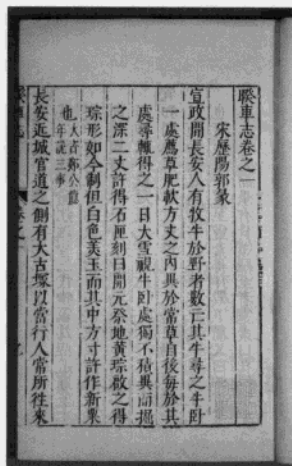 睽車志卷之一
宋歷陽郭彖
宣政間長安人有牧牛於野者數亡其牛尋之牛卧
一處薦草肥軟方丈之內異於常草自後每於其
處尋輙得之一日大雪視牛卧處獨不積異而掘
之深二丈許得石匣刻曰開元祭地黃琮啟之得
琮形如今制但白色美玉而其中方寸許作新栗
也大古鄭公館
年說三事
長安近城官道之側有大古塚以當行人常所往來